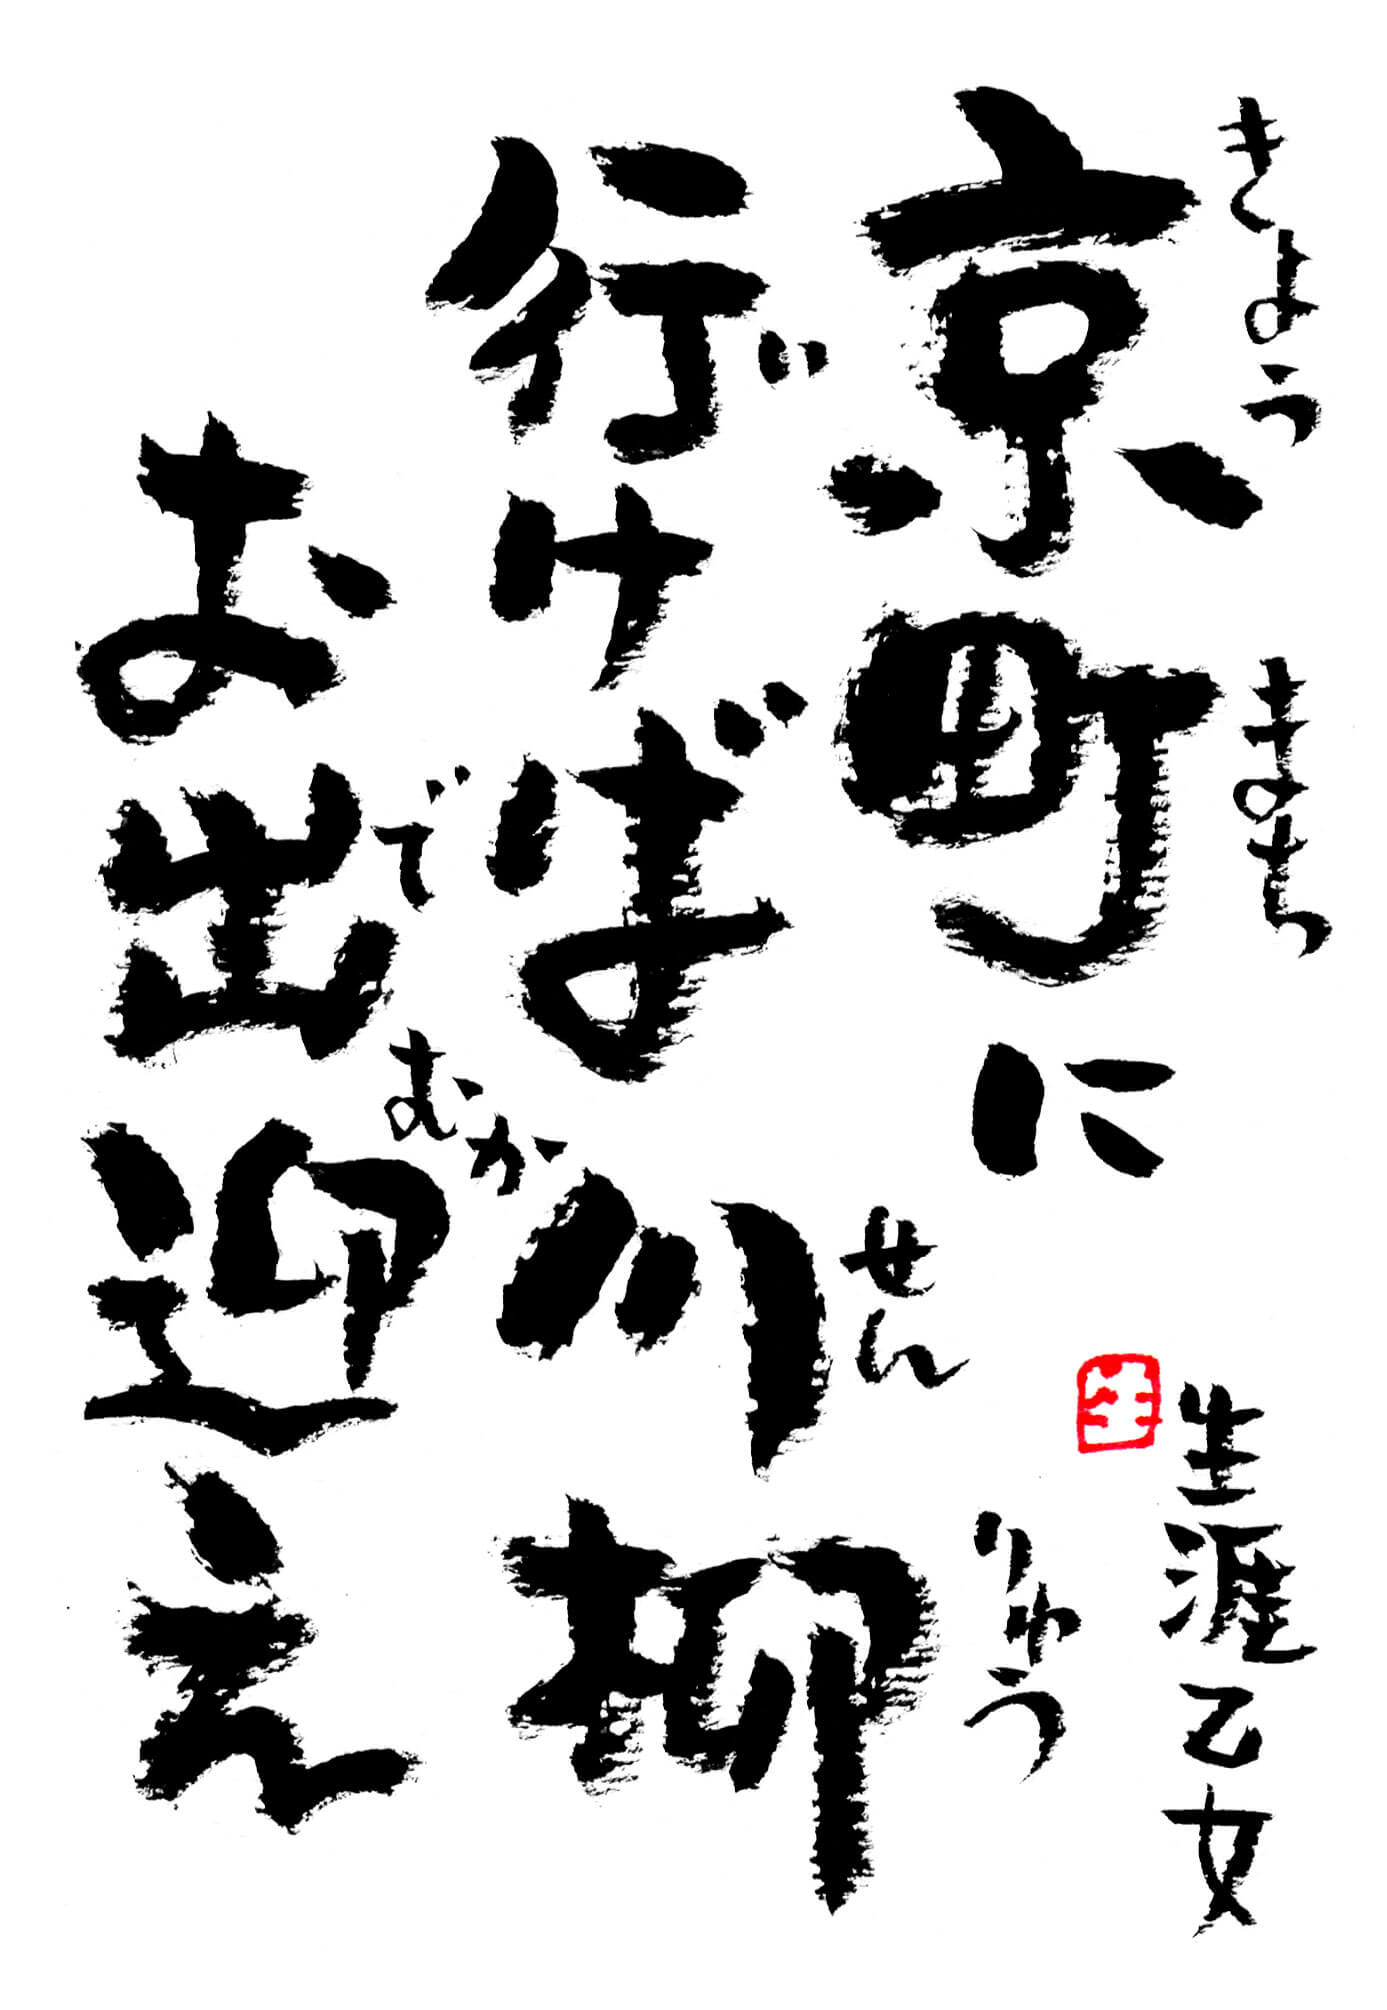 京町に
きょう まち
行けば川柳
い せん りゅう
お出迎え
で むか
生涯乙女
生